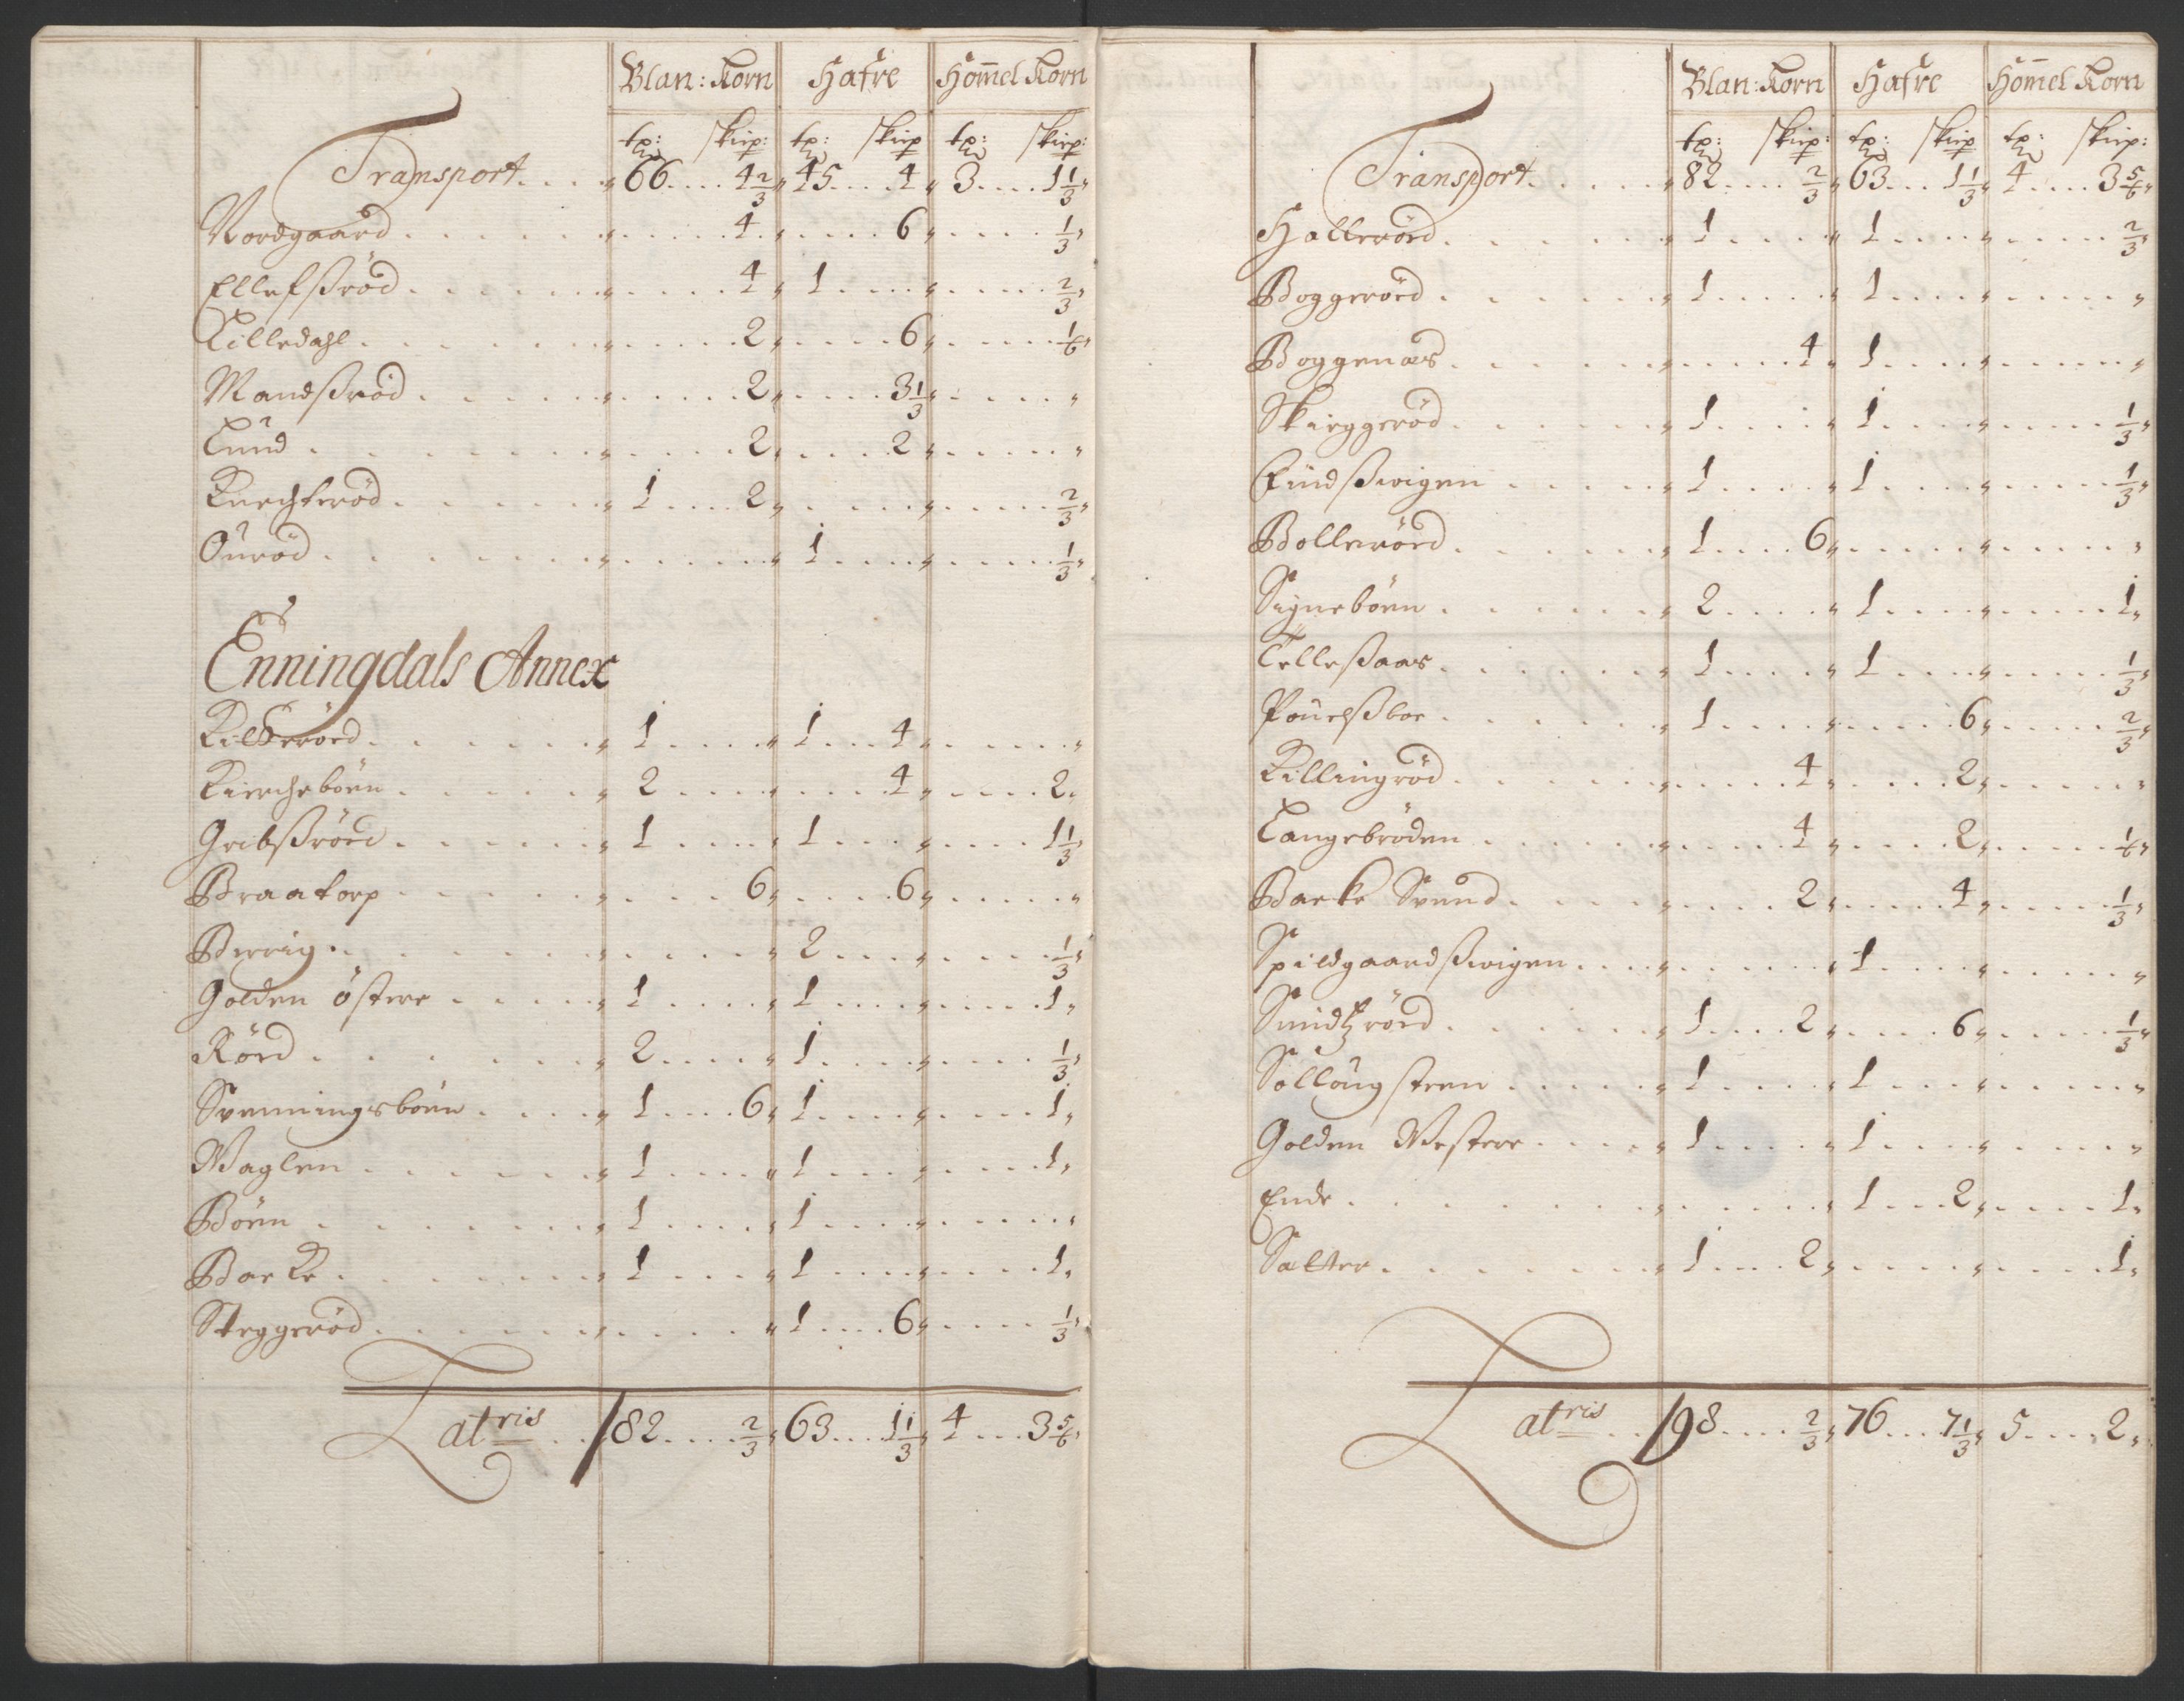 Blan: Korn Hafre Hom̄el Korn
tp: skiep: tp: skiep tp: skiep:
Transport. . . . 66. . . . 4 2/3 45. . . . 4 3. . . . 1 1/3
Nordgaard . . . . . . 4. . . . . 6 . . . . . 1/3
Ellefsßröd . . . . . . 4 1. . . . . . . . . 2/3
Lilledahl . . . . . . 2 . . . . 6 . . . . . 1/6
Mandsßröd . . . . . . 2 . . . . 3 1/3 . . . . .
Lund . . . . . . 2 . . . . 2 . . . . .
Knechteröd . . . . . 1. . . . 2 . . . . . . . . . 2/3
Ouröd . . . . . . . . . . 1. . . . . . . . . 1/3
Enningdals Annex
Kilkerörd . . . . . . 1. . . . . 1. . . 4 . . . . .
Kircheböen . . . . . 2. . . . . . . . . 4 . . . . 2
Gribsßrörd . . . . . . 1. . . . 1. . . . . . . . 1 1/3
Braatorp . . . . . . . . . 6 . . . . 6 . . . . .
Berrig . . . . . . . . . . 2. . . . . . . . . 1/3
Golden östere . . . . 1. . . . 1. . . . . . . . 1
Rörd . . . . . . 2. . . . 1. . . . . . . . 1/3
Svenningsböen . . . . 1. . . . 6 1. . . . . . . . 1
Waglen . . . . . . 1. . . . 1. . . . . . . . 1
Böen . . . . . . 1. . . . . 1. . . . . . . . .
Barke . . . . . . 1. . . . 1. . . . . . . . 1
Steggeröd . . . . . . . . . . . 1. . . . 6 . . . . 1/3
Latris . . 82. . . . 2/3 63. . . 1 1/3 4. . . 3 5/6
Blan: Korn Hafre Hom̄el Korn
tp: skiep: tp: skiep tp: skiep:
Transport. . . . . 82. . . . 2/3 63. . . 1 1/3 4. . . . 3 5/6
Hallerörd . . . . . . 1. . . . 1. . . . . . . . . 2/3
Boggerörd . . . . . . 1. . . . . 1. . . . . . . . .
Boggenæs . . . . . . . . . . 4 1. . . . . . . . .
Skieggeröd . . . . . . 1. . . . 1. . . . . . . . 1/3
Findsßwigen . . . . . 1. . . . 1. . . . . . . . 1/3
Bollerörd . . . . . . 1. . . . 6 . . . . . . . . .
Signeböen . . . . . . 2. . . . 1. . . . . . . . 1
Tellesßaas . . . . . . 1. . . . 1. . . . . . . . 1/3
Pouelsßboe . . . . . . 1. . . . . . . . 6 . . . . 2/3
Killingröd . . . . . . . . . . 4 . . . . 2 . . . . .
Langebröden . . . . . . . . . 4 . . . . 2 . . . . 1/6
Barke Svend . . . . . . . . 2 . . . . 4 . . . . 1/3
Spildgaardsßwigen . . . . . . . . 1. . . . . . . . .
Smidtzrörd . . . . . . 1. . . . 2 . . . . 6 . . . . 1/3
Sollöug steen . . . . . 1. . . . 1. . . . . . . . .
Golden Westere . . . . 1. . . . 1. . . . . . . . .
Ende . . . . . . . . . . . 1. . . 2 . . . . 1
Salter . . . . . . 1. . . . 2 . . . . . . . . 1
Latris . . 98. . . . 2/3 76. . . 7 1/3 5. . . . 2